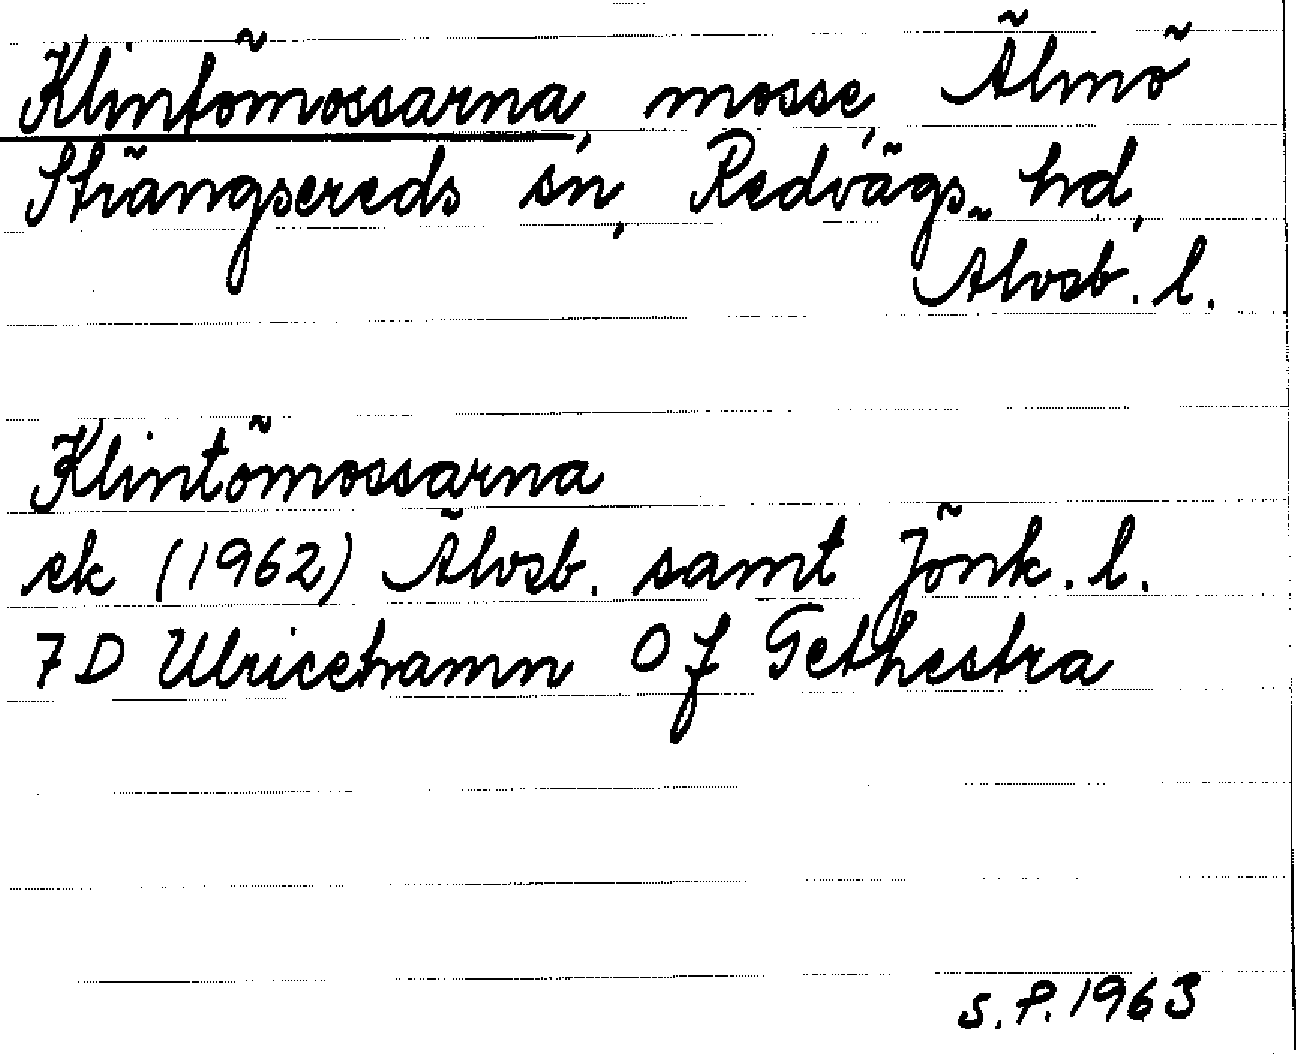 Klintömossarna, mosse, Älmö
Strängsereds sn, Redvägs hd,
Älvsb. l.
Klintömossarna
ek (1962) Älvsb. samt Jönk. l.
7D Ulricehamn 0f Gethestra
S.P. 1963